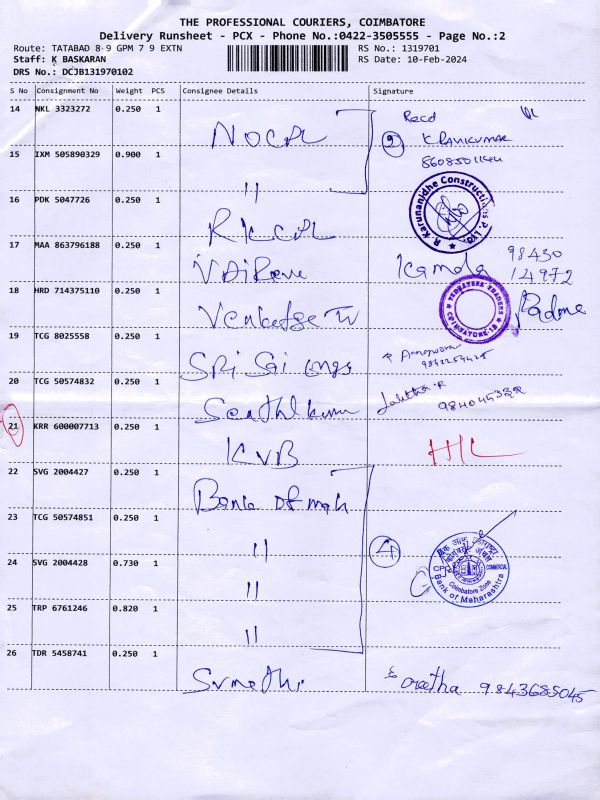 THE PROFESSIONAL COURIERS, COIMBATORE
Delivery Runsheet - PCX - Phone No.:0422-3505555 - Page No.:2
Route: TATABAD 8-9 GPM 7 9 EXTN RS No.: 1319701
Staff: K BASKARAN RS Date: 10-Feb-2024
DRS No.: DCJB131970102
S No Consignment No Weight PCS Consignee Details Signature
14 NKL 3323272 0.250 1 NOCPL Recd
K RAVIKUMAR
15 IXM 505890329 0.900 1 " 8608501144
16 PDK 5047726 0.250 1 RKCPL R Karunanidhe Constructions P. Ltd.
17 MAA 863796188 0.250 1 Kamala 98430 14972
18 HRD 714375110 0.250 1 VENKATESA TRADERS COIMBATORE-18 Padma
19 TCG 8025558 0.250 1 Sri Sai
20 TCG 50574832 0.250 1 Senthil kumar Lalitha.R
21 KRR 600007713 0.250 1 KVB HL
22 SVG 2004427 0.250 1 Bank of mah
23 TCG 50574851 0.250 1 " 4
24 SVG 2004428 0.730 1 " Bank of Maharashtra Coimbatore Zone
25 TRP 6761246 0.820 1 "
26 TDR 5458741 0.250 1 Sumathi 9843685045